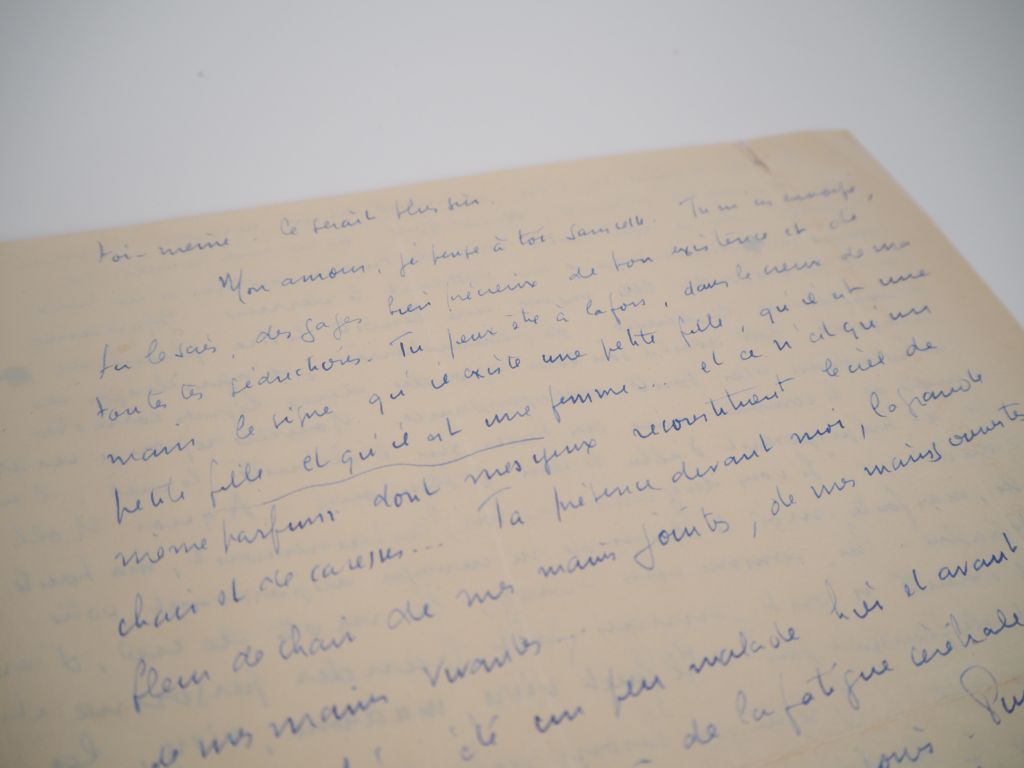 toi-même. Ce serait plus sûr.
Mon amour, je pense à toi sans cesse. Tu m'as envoyé,
tu le sais, des gages bien précieux de ton existence et de
toutes tes séductions. Tu peux être à la fois, dans le creux de ma
main le signe qu'il existe une petite fille, qu'il est une
petite fille et qu'il est une femme... et ce n'est qu'un
même parfum dont mes yeux reconstituent le ciel de
chair et de caresses... Ta présence devant moi, la grande
fleur de chair de mes mains jointes, de mes mains ouvertes
de mes mains vivantes
été un peu malade hier et avant
de la fatigue cérébrale